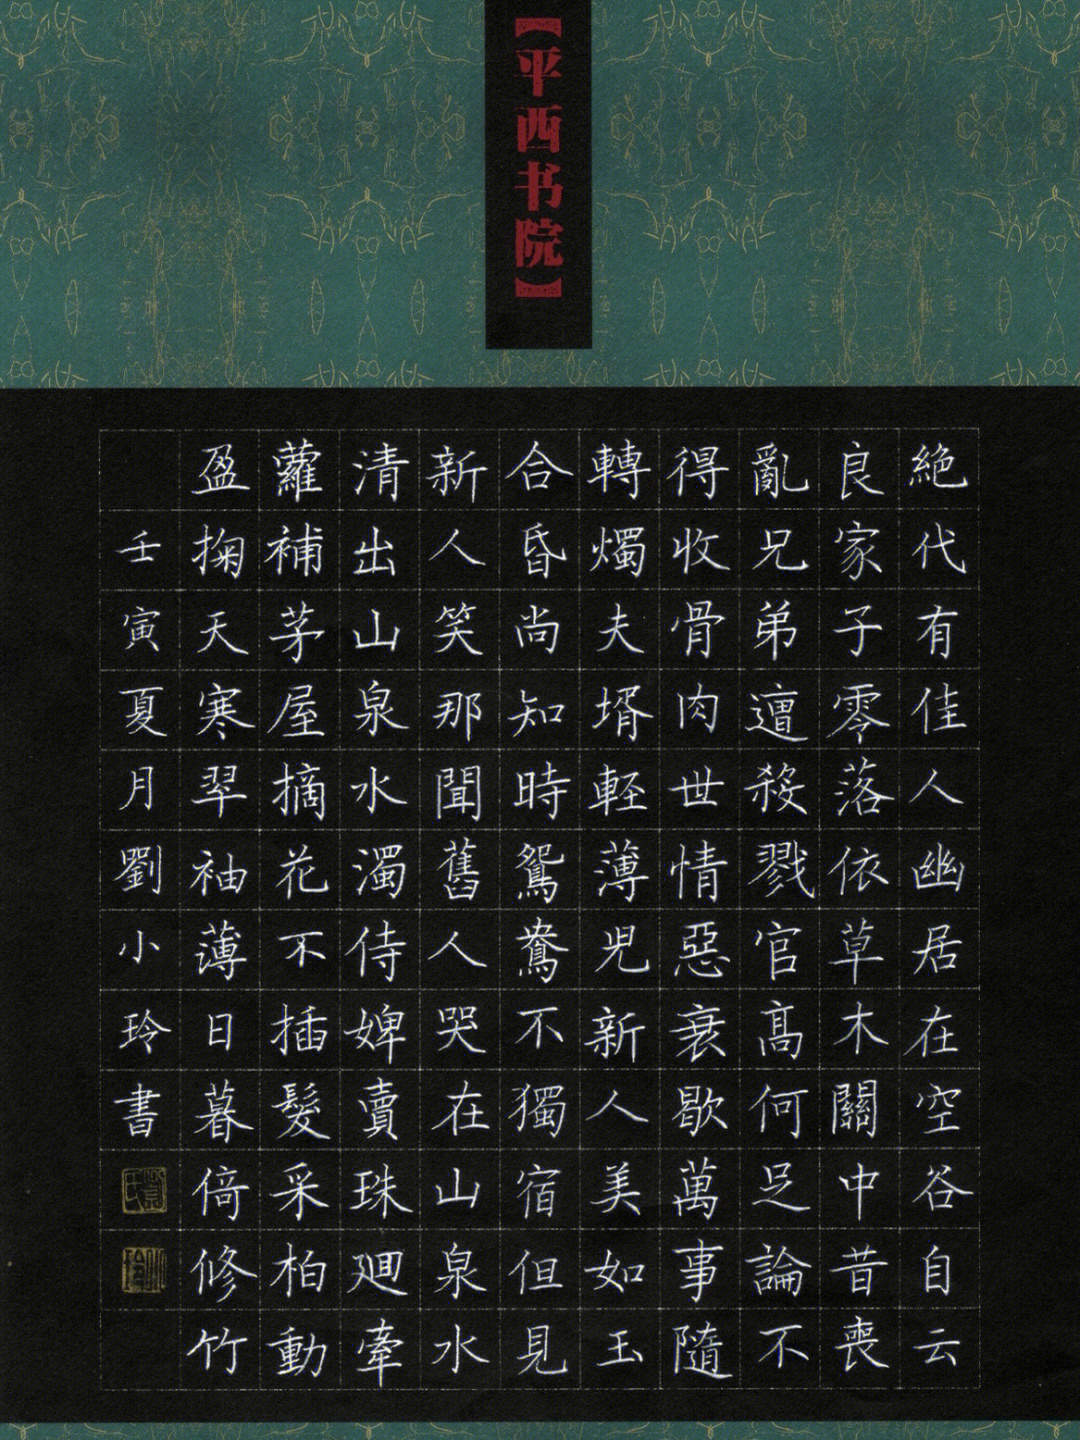 【平西书院】
絶代有佳人幽居在空谷自云
良家子零落依草木關中昔喪
亂兄弟遭殺戮官髙何足論不
得收骨肉世情惡衰歇萬事隨
轉燭夫壻輕薄兒新人美如玉
合昏尚知時鴛鴦不獨宿但見
新人笑那聞舊人哭在山泉水
清出山泉水濁侍婢賣珠廻牽
蘿補茅屋摘花不插髮采柏動
盈掬天寒翠袖薄日暮倚修竹
壬寅夏月劉小玲書